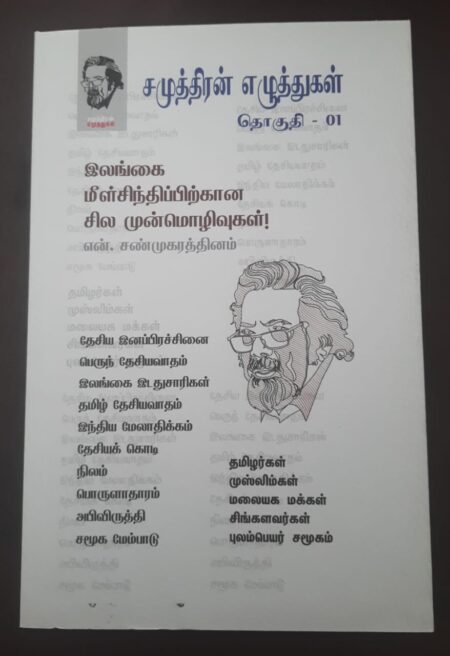 சமுத்திரன் எழுத்துகள்
தொகுதி - 01
சமுத்திரன்
எழுத்துகள்
இலங்கை
மீள்சிந்திப்பிற்கான
சில முன்மொழிவுகள்!
என். சண்முகரத்தினம்
தேசிய இனப்பிரச்சினை
பெருந் தேசியவாதம்
இலங்கை இடதுசாரிகள்
தமிழ் தேசியவாதம்
இந்திய மேலாதிக்கம்
தேசியக் கொடி
நிலம்
பொருளாதாரம்
அபிவிருத்தி
சமூக மேம்பாடு
தமிழர்கள்
முஸ்லிம்கள்
மலையக மக்கள்
சிங்களவர்கள்
புலம்பெயர் சமூகம்